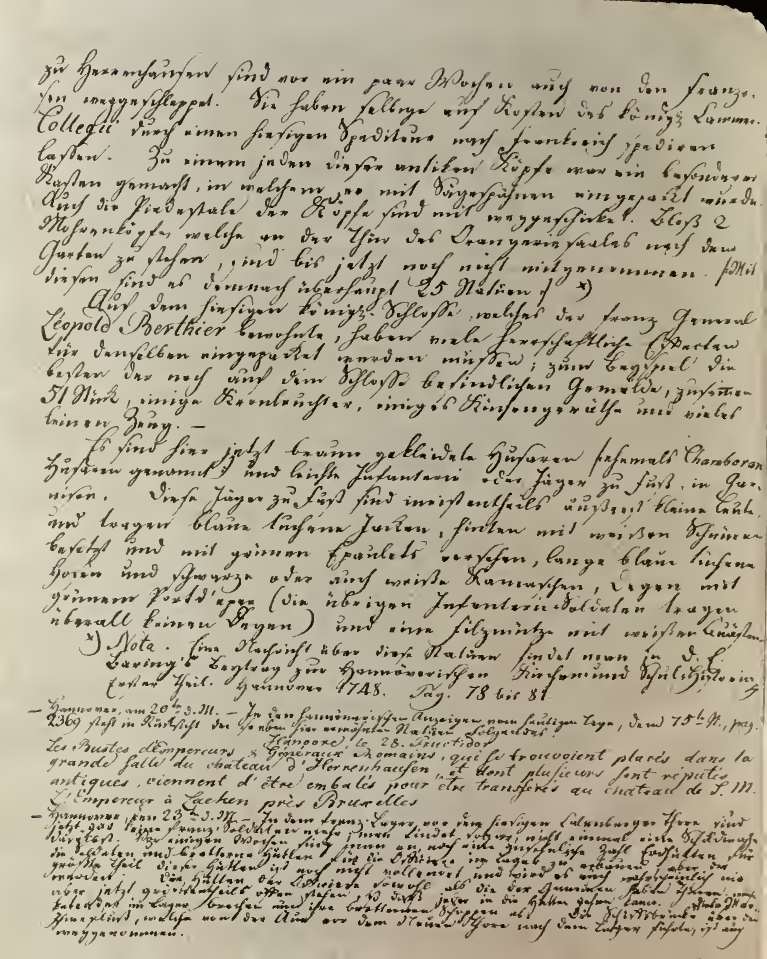 zu Herrenhausen sind vor ein paar Wochen auch von den Franzo-
sen weggeschleppet. Sie haben selbige auf Kosten des königl. Cammer-
Collegii durch einen hiesigen Spediteur nach Frankreich spediren
lassen. Zu einem jeden dieser antiken Köpfe war ein besonderer
Kasten gemacht, in welchem er mit Sägespähnen eingepackt wurde.
Auch die Piedestale der Köpfe sind mit weggeschickt. Bloß 2
Mohrenköpfe, welche an der Thür des Orangeriesaales nach dem
Garten zu stehen, sind bis jetzt noch nicht mitgenommen. (Mit
diesen sind es demnach überhaupt 25 Statüen) x)
Auf dem hiesigen königl. Schlosse, welches der franz. General
Léopold Berthier bewohnte, haben viele herrschaftliche Effecten
für denselben eingepacket werden müssen; zum Beyspiel die
besten der noch auf dem Schlosse befindlichen Gemälde, zusammen
51 Stück, einige Kronleuchter, einiges Küchengeräthe und vieles
leinen Zeug. —
Es sind hier jetzt braun gekleidete Husaren (ehemals Chamboran
Husaren genannt) und leichte Infanterie oder Jäger zu Fuß, in Gar-
nison. Diese Jäger zu Fuß sind meistentheils äußerst kleine Leute,
und tragen blaue tuchene Jacken, hinten mit weißen Schnüren
besetzt und mit grünen Epaulets versehen, lange blaue tuchene
Hosen und schwarze oder auch weiße Kamaschen, Degen mit
grünem Portd'epee (die übrigen Infanterie Soldaten tragen
überall keinen Degen) und eine Filzmütze mit weißen Quästen.
x) Nota. Eine Nachricht über diese Statüen findet man in D. E.
Baring's Beytrag zur Hannöverischen Kirchen und Schul Historia,
Erster Theil. Hannover 1748. Pag. 78 bis 81.
— Hannover, am 20ten d. M. — In den hannöverischen Anzeigen vom heutigen Tage, dem 75ten St., pag.
2369 steht in Rücksicht der so eben hier erwähnten Statüen folgendes:
Hanovre, le 28. Fructidor
Les Bustes d'Empereurs & Généraux Romains, qui se trouvoient placés dans la
grande salle du château d'Herrenhausen, et dont plusieurs sont réputés
antiques, viennent d'être embalés pour être transférés au chateau de S. M.
L'Empereur à Lacken près Bruxelles
— Hannover, den 23ten d. M. — In dem franz. Lager vor dem hiesigen Calenberger Thore sind
jetzt gar keine franz. Soldaten mehr; man findet sogar nicht einmal eine Schildwache
daselbst. Vor einigen Wochen fing man an, noch eine ansehnliche Zahl Erdhütten für
die Soldaten und bretterne Hütten für die Officiere im Lager zu erbauen, aber der
größte Theil dieser Hütten ist noch nicht vollendet und wird es auch wahrscheinlich nie
werden. Die Hütten der Officiere sowohl als die der Gemeinen
aber jetzt größtentheils offen stehen, so daß jeder in die Hütten gehen kann.
im Lager brechen und ihre bretternen Schoppen ab. Die Schiffbrücke über den
welche von der Aue vor dem Neuen Thore nach dem Lager führte, ist auch
weggenommen.